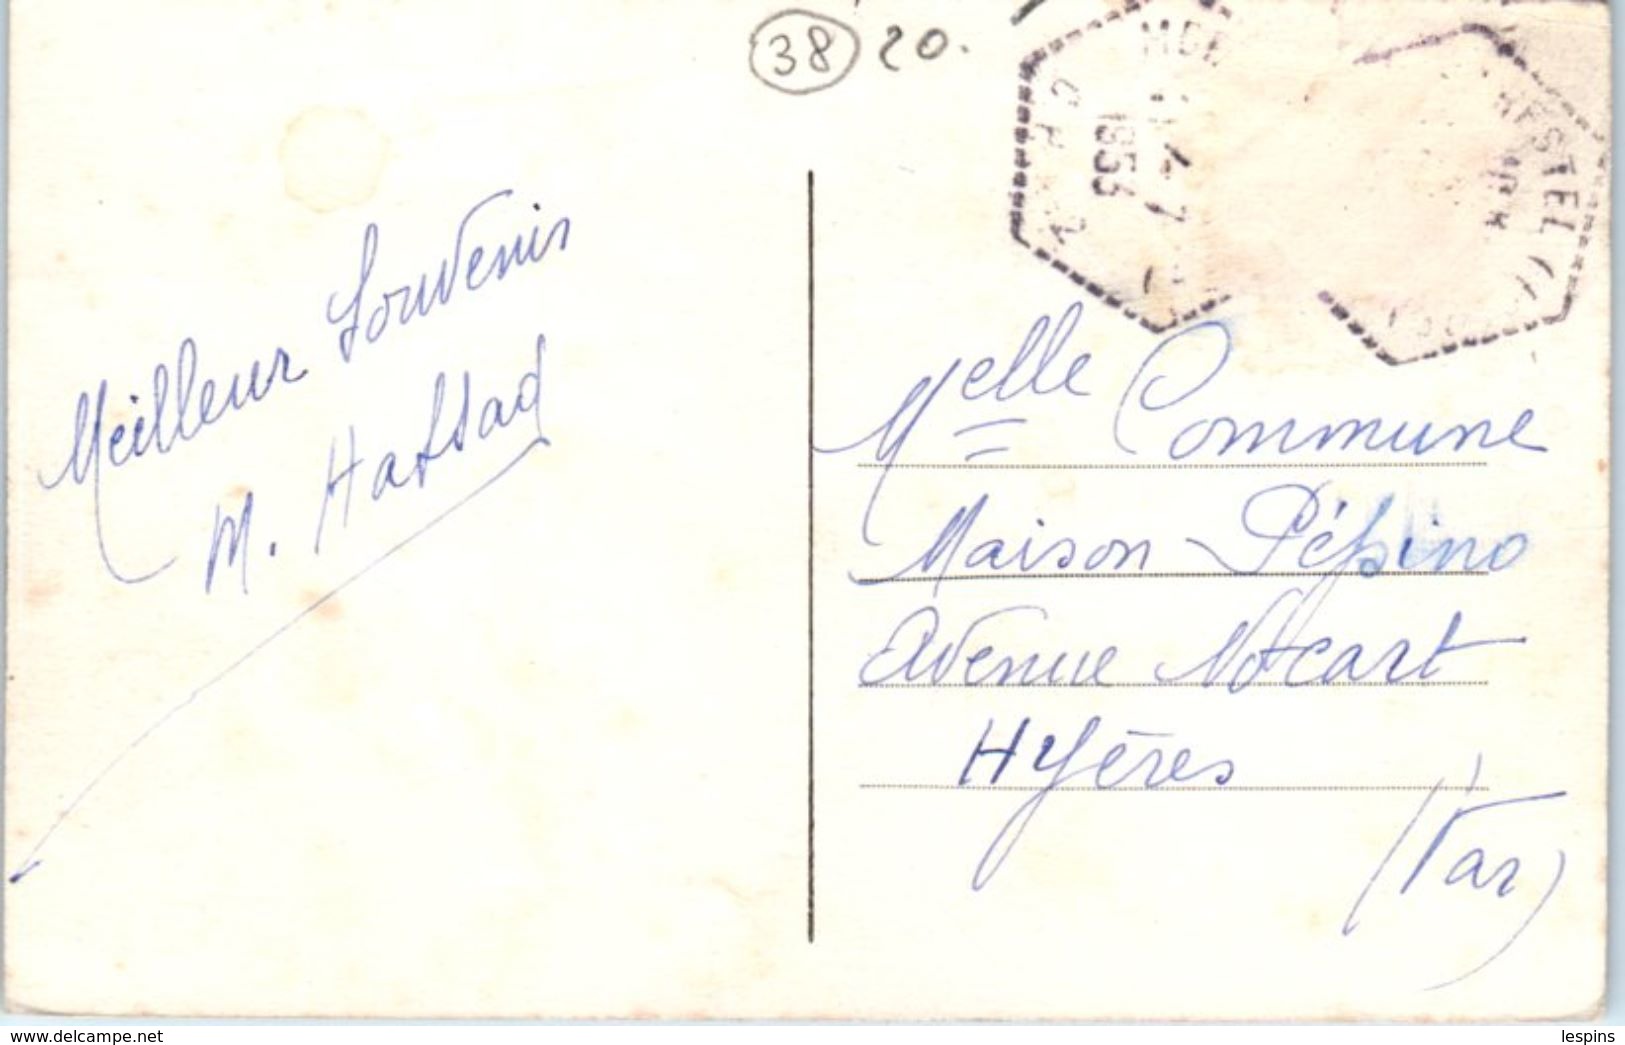 38 20.
1953
Meilleur Souvenir
M. Hassad
Melle Commune
Maison Péssino
Avenue Notcart
Hyères
(Var)
delcampe.net
lespins